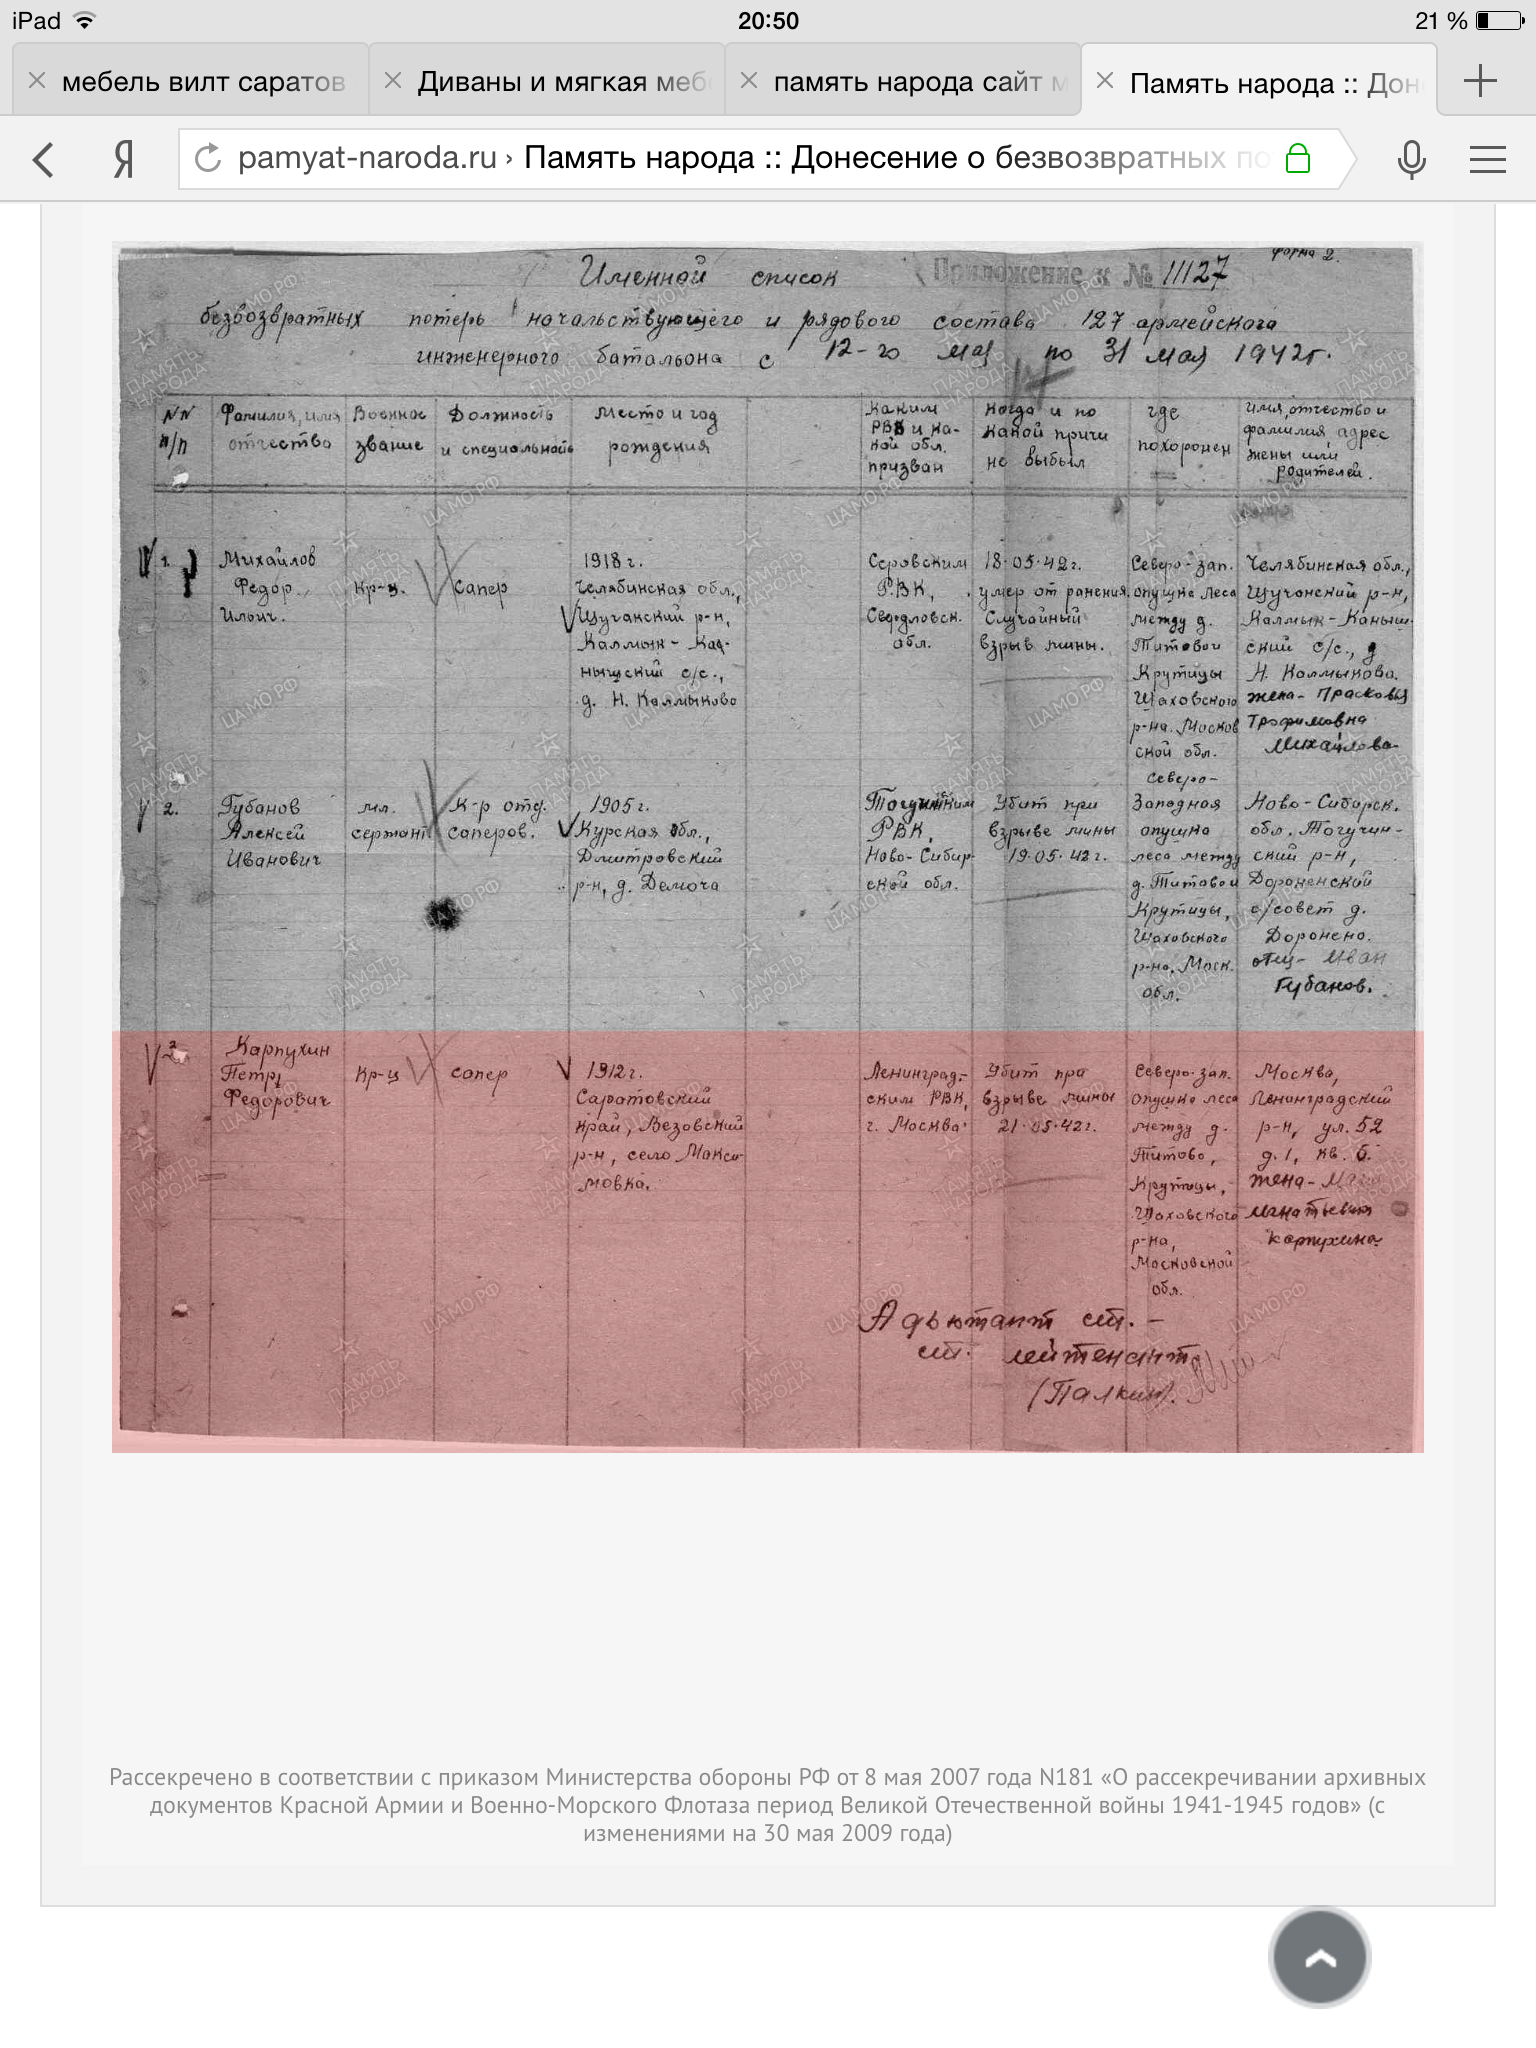 iPad 20:50 21 %
мебель вилт саратов
Диваны и мягкая меб
память народа сайт м
Память народа :: Дон
Я pamyat-naroda.ru › Память народа :: Донесение о безвозвратных по
форма 2.
Именной список Приложение к № 11127
безвозвратных потерь начальствующего и рядового состава 127 армейского
инженерного батальона с 12-го мая по 31 мая 1942г.
NN п/п
Фамилия, имя отчество
Военное звание
Должность и специальность
Место и год рождения
Каким РВК и ка-
кой обл.
призван
Когда и по
какой причи
не выбыл
где
похоронен
имя, отчество и
фамилия, адрес
жены или
родителей.
1.
Михайлов
Федор
Ильич.
Кр-ц.
Сапер
1918 г.
Челябинская обл.,
Щучанский р-н,
Калмык-
нышский с/с.,
д. Н. Калмыково
Серовским
РВК,
Свердловск.
обл.
18.05.42г.
умер от ранения.
Случайный
взрыв мины.
Северо-зап.
опушка леса
между д.
Титовой
Крутицы
Шаховского
р-на. Москов
ской обл.
Челябинская обл.,
Щучонский р-н,
Калмык-Каныш-
ский с/с., д
Н. Калмыкова.
жена- Прасковья
Трофимовна
Михайлова
2.
Губанов
Алексей
Иванович
мл.
сержант
К-р отд.
саперов.
1905 г.
Курская обл.,
Дмитровский
р-н, д. Демоча
Тогучинским
РВК,
Ново-Сибир-
ской обл.
Убит при
взрыве мины
19.05.42г.
Северо-
Западная
опушка
леса между
д. Титовой
Крутицы,
Шаховского
р-на, Моск.
обл.
Ново-Сибирск.
обл. Тогучин-
ский р-н,
Дороненский
с/совет д.
Доронено.
отец- Иван
Губанов.
3.
Карпухин
Петр
Федорович
Кр-ц
сапер
1912г.
Саратовский
край, Вязовский
р-н, село Макси-
мовка.
Ленинград-
ским РВК,
г. Москва
Убит при
взрыве мины
21.05.42г.
Северо-зап.
опушка леса
между д.
Титово,
Крутицы,
Шаховского
р-на,
Московской
обл.
Москва,
Ленинградский
р-н, ул. 52
д. 1, кв. 6.
жена-
Игнатьевна
Карпухина
Адьютант ст. -
ст. лейтенант
(Палкин).
Рассекречено в соответствии с приказом Министерства обороны РФ от 8 мая 2007 года N181 «О рассекречивании архивных
документов Красной Армии и Военно-Морского Флотаза период Великой Отечественной войны 1941-1945 годов» (с
изменениями на 30 мая 2009 года)